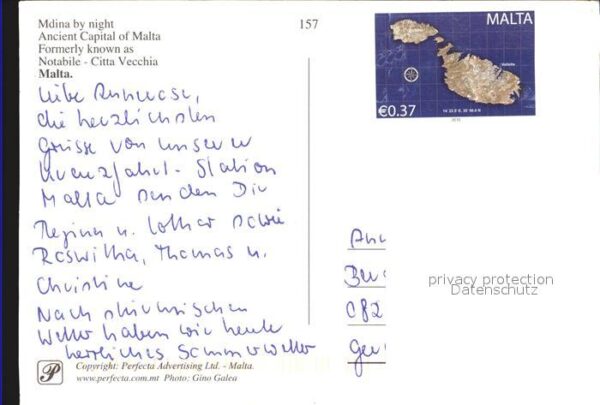 Mdina by night
Ancient Capital of Malta
Formerly known as
Notabile - Citta Vecchia
Malta.
157
MALTA
€0.37
Liebe Annerose,
die herzlichsten
Grüsse von unserer
Kreuzfahrt-Station
Malta senden Dir
Regina u. Lothar sowie
Roswitha, Thomas u.
Christine
Nach stürmischen
Wetter haben wir heute
herrliches Sommerwetter
privacy protection
Datenschutz
Copyright: Perfecta Advertising Ltd. - Malta.
www.perfecta.com.mt Photo: Gino Galea